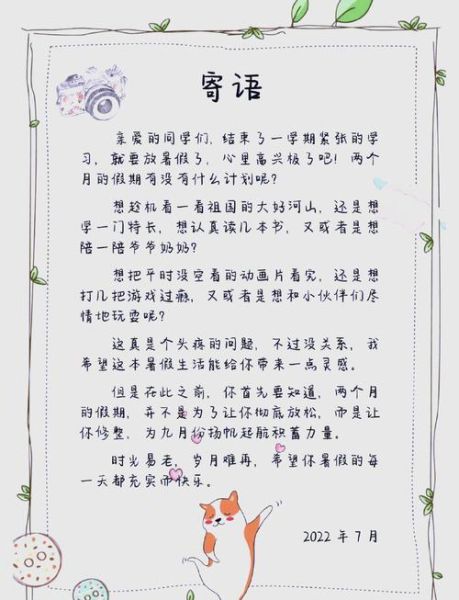 寄语
亲爱的同学们，结束了一学期紧张的学
习，就要放暑假了，心里高兴极了吧！两个
月的假期有没有什么计划呢？
想趁机看一看祖国的大好河山，还是想
学一门特长，想认真读几本书，又或者是想
陪一陪爷爷奶奶？
想把平时没空看的动画片看完，还是想
打几把游戏过瘾，又或者是想和小伙伴们尽
情地玩耍呢？
这真是个头疼的问题，不过没关系，我
希望这本暑假生活能给你带来一点灵感。
但是在此之前，你首先要知道，两个月
的假期，并不是为了让你彻底放松，而是让
你修整，为九月份扬帆起航积蓄力量。
时光易老，岁月难再，希望你暑假的每
一天都充实而快乐。
2022 年 7 月